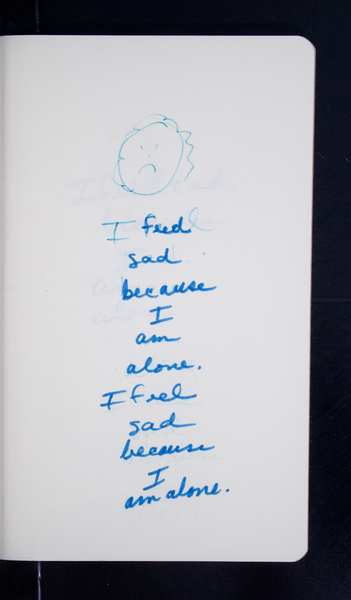 I feel
sad
because
I
am
alone.
I feel
sad
because
I
am alone.